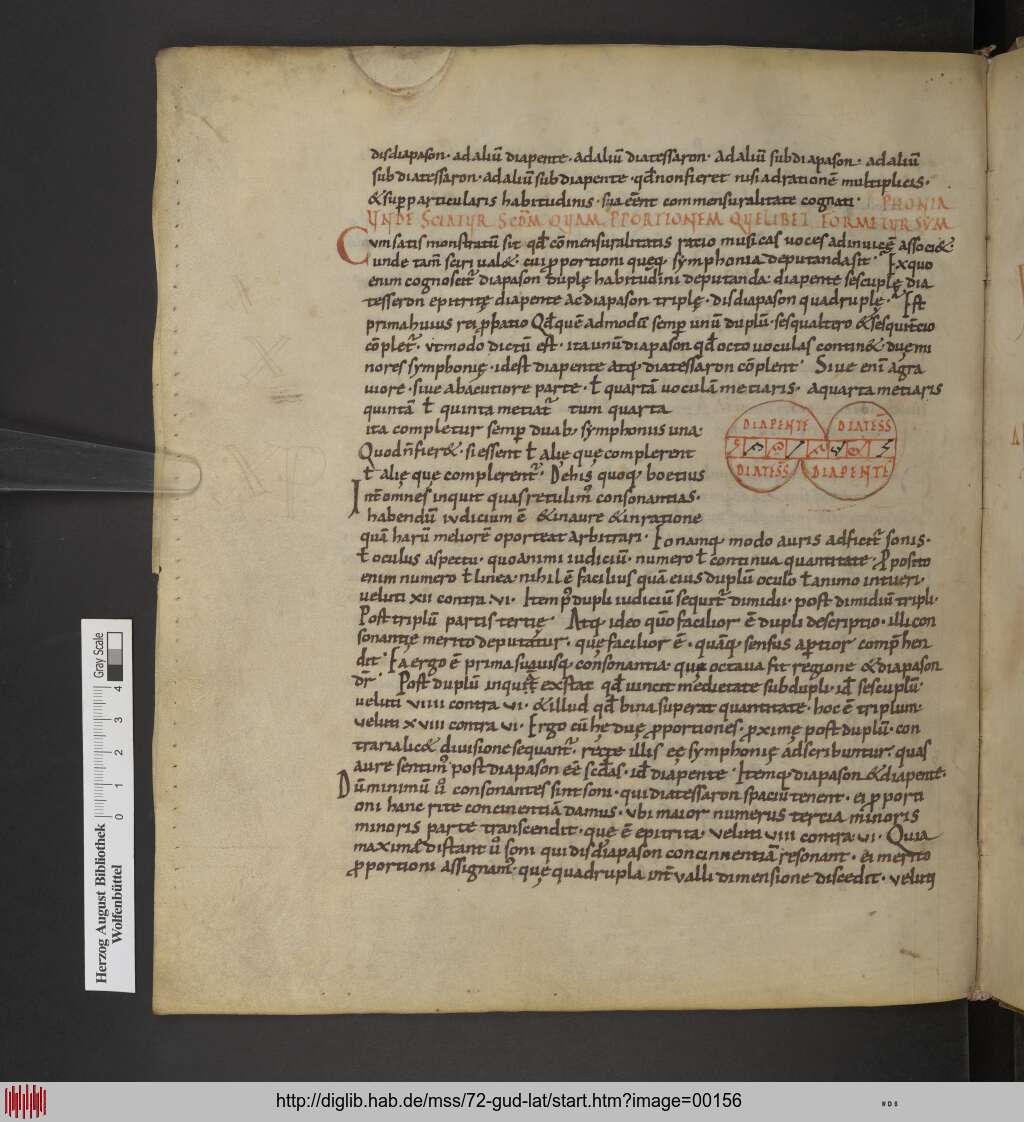 disdiapason · ad aliū diapente · ad aliū diatessaron · ad aliū subdiapason · ad aliū
sub diatessaron · ad aliū sub diapente · qđ non fieret nisi ad rationē multiplicis ·
& supparticularis habitudinis · sua eēnt commensuralitate cognati · PHONIA
VNDE SCIATVR SCDM QVAM PPORTIONEM QVELIBET FORMETVR SYM
Cum satis monstratū sit qđ cōmensuralitatis ratio musicas voces ad inuicē associ&
unde tam̄ sciri ual& · cui pportioni queq; symphonia deputanda sit · Ex quo
enim cognoscit᷑ diapason duplę habitudini deputanda · diapente sescuplę dia
tesseron epitritę diapente ac diapason triplę · disdiapason quadruplę · Est
prima huius rei pbatio Qđ quē admodū semp unū duplū · sesqualtero & sesquitertio
cōplet᷑ · ut modo dictū est · ita unū diapason qđ octo uoculas contin& duę mi
nores symphonię · id est diapente atq; diatessaron cōplent · Siue eni a gra
uiore · siue ab acutiore parte · ł quartā uoculā metiaris · a quarta metiaris
quintā ł quinta metiat᷑ tum quarta
ita completur semp duab; symphoniis una ·
Quod n̄ fier& · si essent ł alię quę complerent
ł alię que complerent᷑ · De his quoq; boetius
Int̄ omnes inquit quas retulim᷑ consonantias ·
habendū iudicium ē & in aure & in ratione
quā harū meliorē oporteat arbitrari · Eo namq; modo auris adficit᷑ sonis ·
ł oculus aspectu · quo animi iudiciū · numero ł continua quantitate · Pposito
enim numero ł linea · nihil ē facilius quā eius duplū oculo ł animo intueri ·
ueluti XII contra VI · Item p dupli iudiciū sequit᷑ dimidii · post dimidiū tripli ·
Post triplū partis tertię · Atq; ideo quo facilior ē dupli descriptio · illi con
sonantię merito deputatur · quę facilior ē · quāq; sensus aptior comphen
dit · Ea ergo ē prima suauisq; consonantia · quę octaua fit regione & diapason
dr̄ · Post duplū inquit exstat qđ uincit medietate subdupli · id sescuplū ·
ueluti VIIII contra VI · & illud qđ bina superat quantitate · hoc ē triplum ·
ueluti XVIII contra VI · Ergo cū hę duę pportiones · proximę post duplū · con
traria lic& diuisione sequant᷑ · recte illis eę symphonię adscribuntur · quas
aure sentim᷑ post diapason eē scđas · id diapente · Itemq; diapason & diapente ·
Dū minimū ū consonantes sint soni · qui diatessaron spaciū tenent · ei pporti
oni hanc rite concinentiā damus · ubi maior numerus tertia minoris
minoris parte transcendit · quę ē epitrita · ueluti VIII contra VI · Quia
maximā distant ū soni qui disdiapason concinnentiā resonant · ei merito
pportioni assignam᷑ · quę quadrupla int̄ualli dimensione discedit · ueluti
DIAPENTE DIATESS̄
DIATESS̄ DIAPENTE
Herzog August Bibliothek
Wolfenbüttel
0 1 2 3 4
Gray Scale
http://diglib.hab.de/mss/72-gud-lat/start.htm?image=00156
WDB